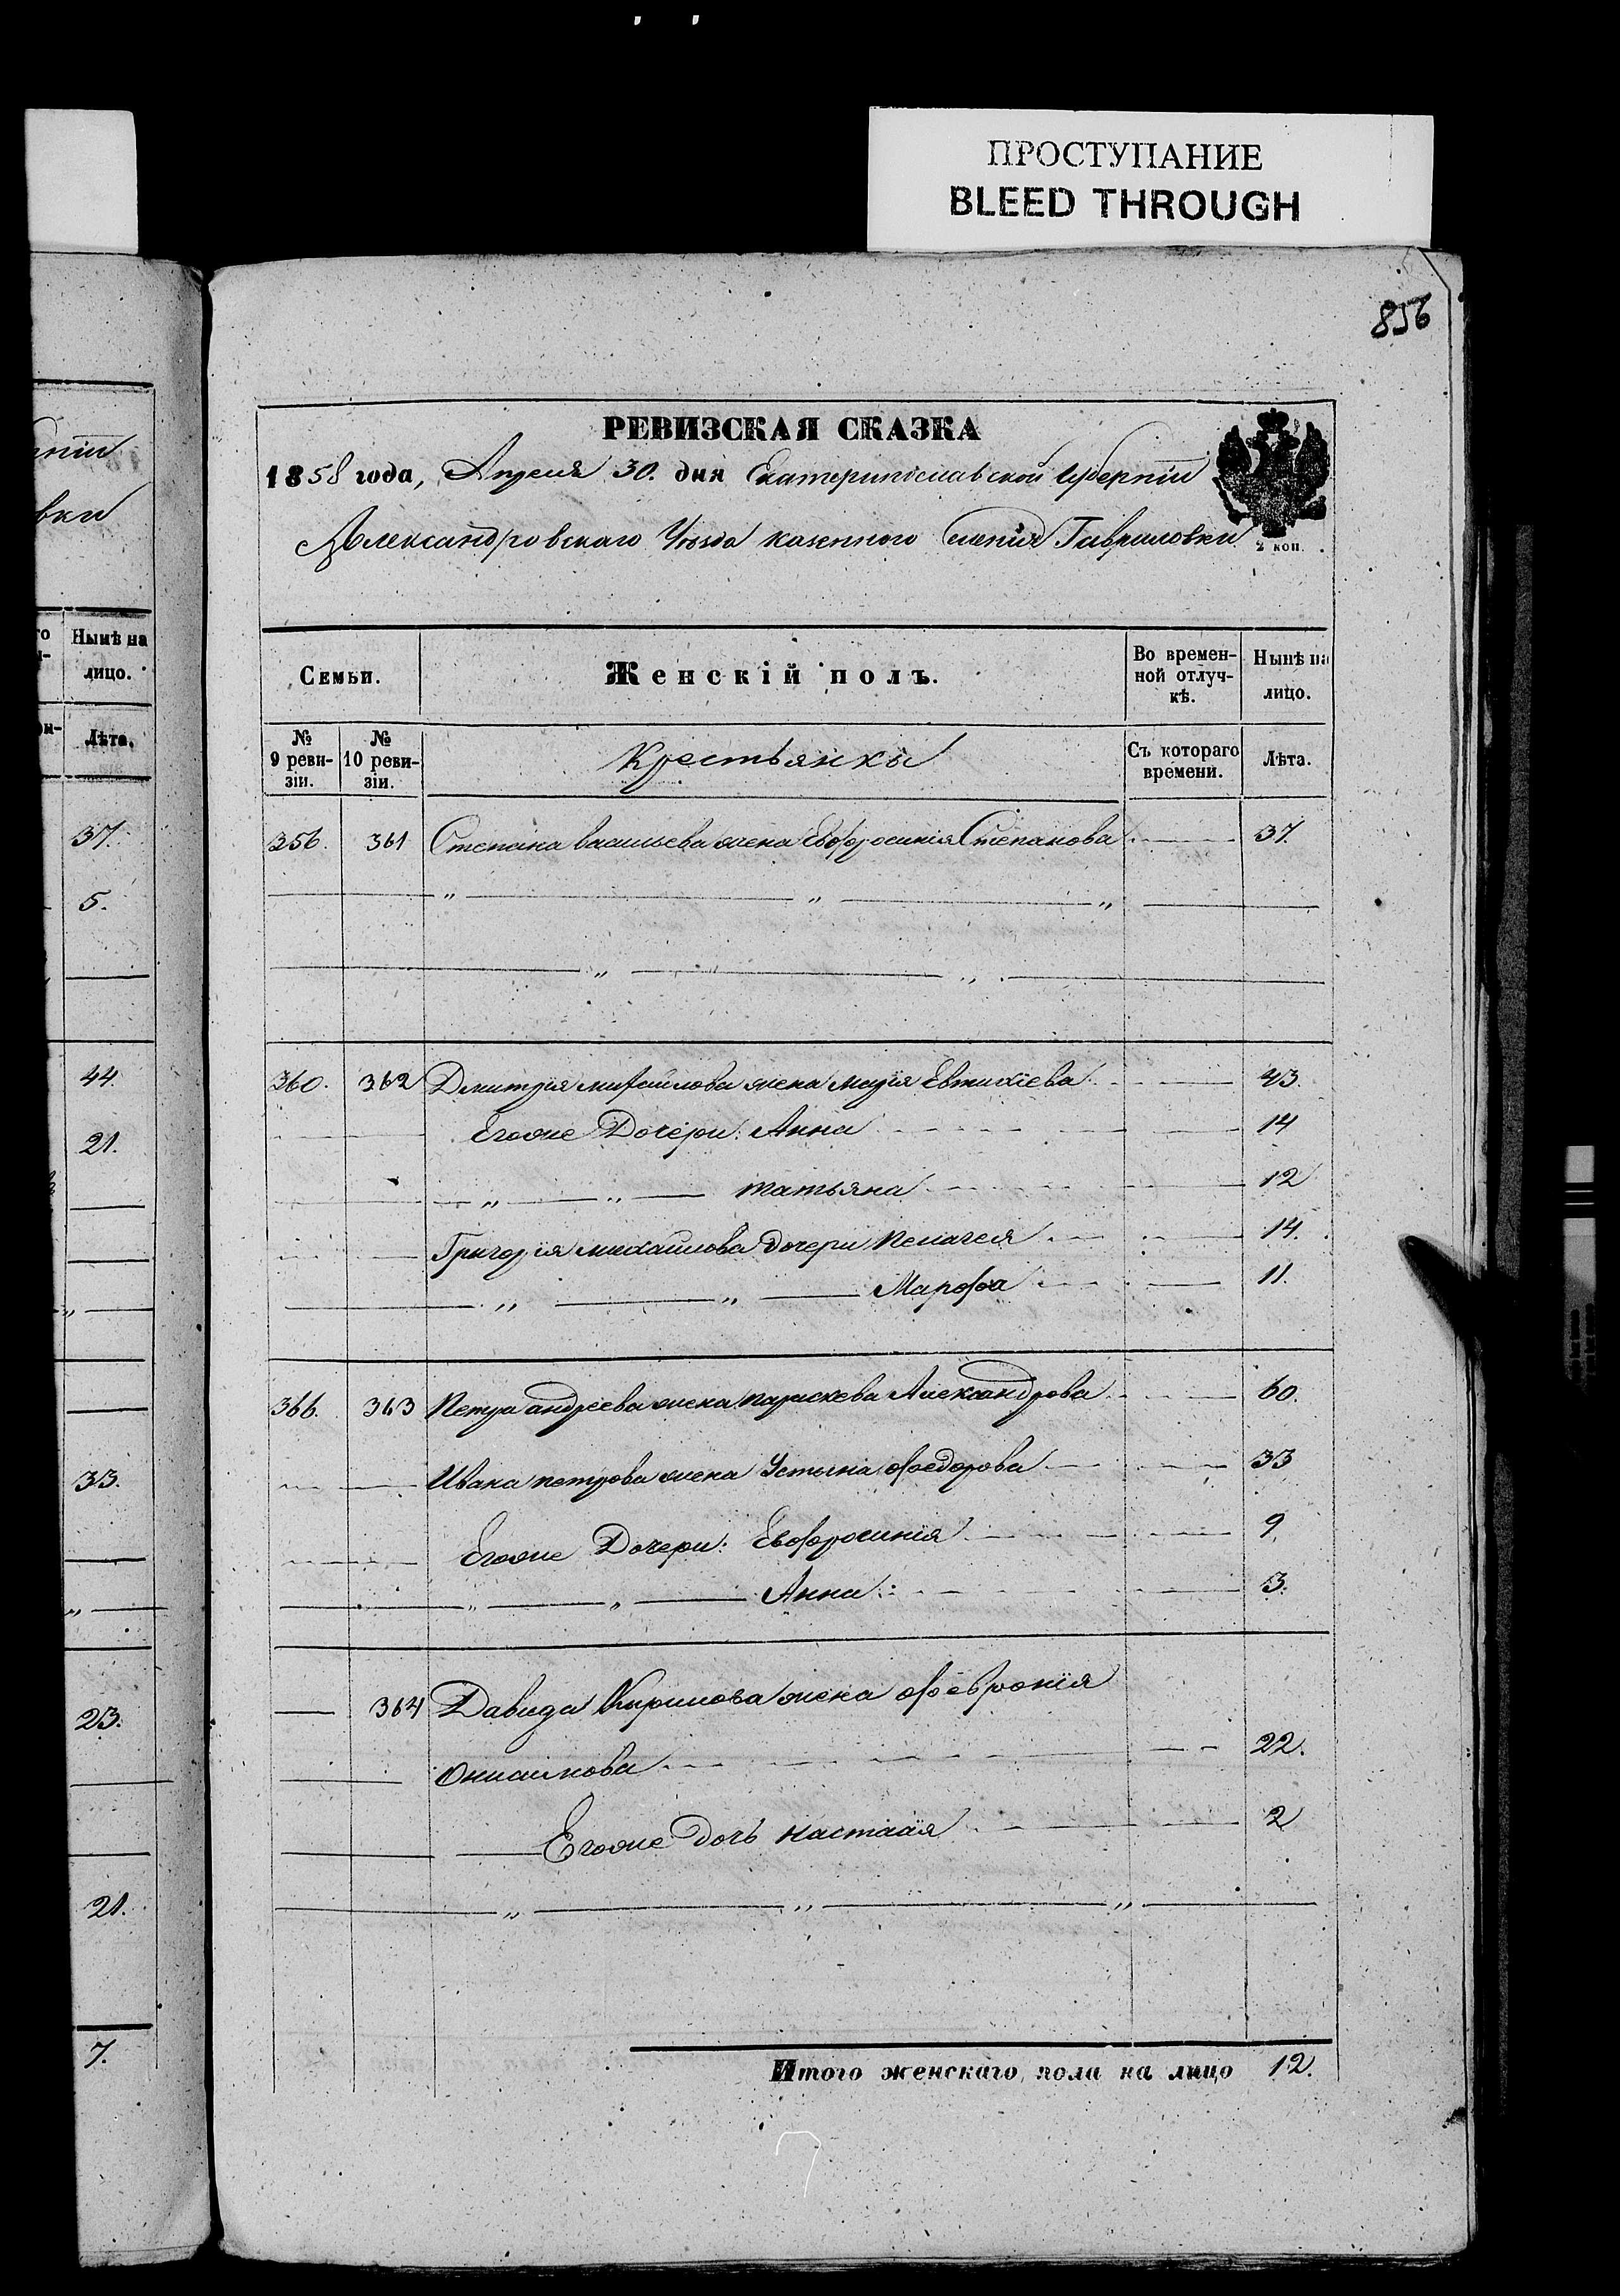 ПРОСТУПАНИЕ
BLEED THROUGH
856
РЕВИЗСКАЯ СКАЗКА
1858 года, Апреля 30. дня Екатеринославской Губернiи
Александровскаго Уѣзда казенного селенiя Гавриловки
2 коп.
Семьи. Женскiй полъ. Во времен-ной отлуч-кѣ. Нынѣ на лицо.
№ 9 реви-зiи. № 10 реви-зiи. Крестьянки Съ котораго времени. Лѣта.
256. 361 Степана васильева жена Евфросинiя Степанова 37.
360. 362 Дмитрiя михайлова жена марiя Евтихiева 43.
Егоже Дочери: Анна 14
" " татьяна 12
Григорiя михайлова дочери Пелагея 14.
" " Марфа 11.
366. 363 Петра андреева жена параскева Александрова 60.
Ивана петрова жена Устына федорова 33
Егоже Дочери: Евфросинiя 9.
" " Анна: 3.
364 Давида Кирилова жена феѵронiя
Онисимова 22.
Егоже дочь настасiя 2
Итого женскаго пола на лицо 12.
нiи
вки
Нынѣ на
лицо.
Лѣта.
37.
5.
44.
21.
33.
23.
21.
7.